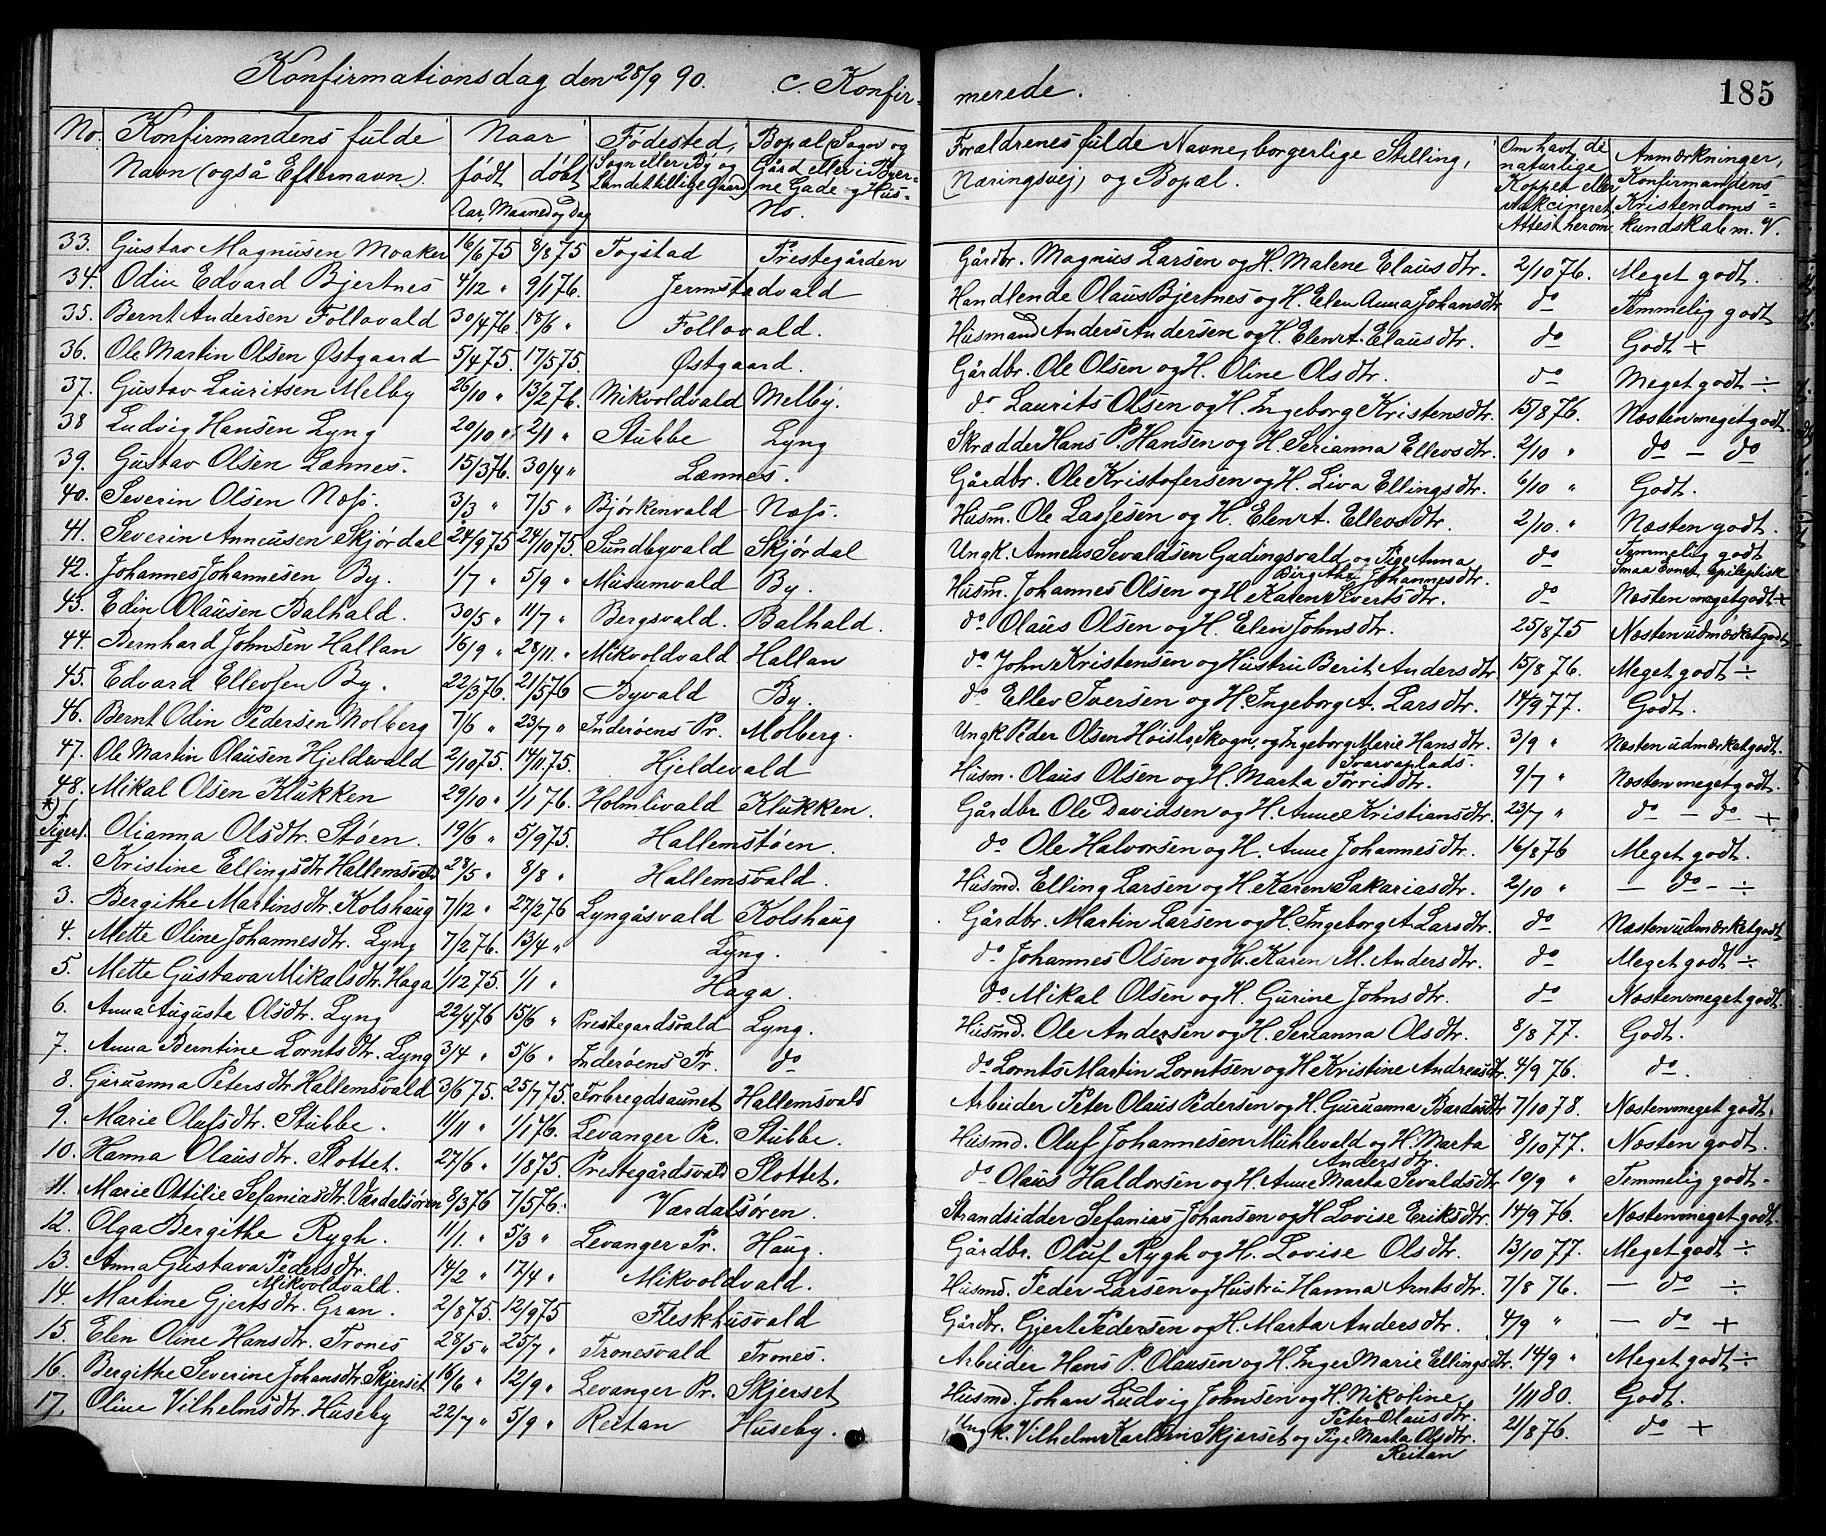 Konfirmationsdag den 28/9 90. C. Konfir- merede. 185
No. Konfirmandens fulde Navn (også Efternavn). Naar født døbt Aar, Maaned og Dag Fødested, Sogn eller By og Landet tillige Gaard Bopæl, Sogn og Gård eller i Byer- ne Gade og Hus- No. Forældrenes fulde Navne, borgerlige Stilling, (Næringsvej) og Bopæl. Om havt de naturlige Kopper eller Vakcineret, Attest herom. Anmærkninger, Konfirmandens Kristendoms- kundskab m. V.
33. Gustav Magnusen Moaker 16/6 75 8/8 75 Fogstad Prestegården Gårdbr. Magnus Larsen og H. Malene Elausdtr. 2/10 76. Meget godt.
34. Odin Edvard Bjertnes 4/12 " 9/1 76. Jermstadvald Handlende Olaus Bjertnes og H. Elen Anna Johansdtr do Temmelig godt
35. Bernt Andersen Follovald 30/4 76. 18/6 " Follovald. Husmand Anders Andersen og H. Elen A. Elausdtr. do Godt +
36. Ole Martin Olsen Østgaard 5/4 75. 17/5 75. Østgaard. Gårdbr. Ole Olsen og H. Oline Olsdtr. do Meget godt ÷
37. Gustav Lauritsen Melby 26/10 " 13/2 76. Mikvoldvald Melby. do Laurits Olsen og H. Ingeborg Kristensdtr. 15/8 76. Næsten meget godt.
38 Ludvig Hansen Lyng 20/10 " 2/1 " Stubbe Lyng Skrædder Hans P. Hansen og H. Serianna Ellevsdtr. 2/10 " do — do
39. Gustav Olsen Lænnes. 15/3 76. 30/4 " Lænnes. Gårdbr. Ole Kristofersen og H. Liva Ellingsdtr. 6/10 " Godt.
40. Severin Olsen Næss. 3/3 " 7/5 " Bjørkenvald Næss. Husm. Ole Lassesen og H. Elen A. Ellevsdtr. 2/10. " Næsten godt.
41. Severin Anneusen Skjørdal 24/9 75 24/10 75. Sundbyvald Skjørdal Ungk. Anneus Sevaldsen Gudingsvald og Pige Anna Birgithe Johannesdtr. do Temmelig godt Smaa Evner, epileptisk
42. Johannes Johannesen By. 1/7 " 5/9 " Musumvald By. Husm. Johannes Olsen og H. Karen Sivertsdtr. do Næsten meget godt +
43. Edin Olausen Balhald. 30/5 " 11/7 " Bergsvald. Balhald. do Olaus Olsen og H. Elen Johnsdtr. 25/8 75 Næsten udmærket godt
44. Bernhard Johnsen Hallan 16/9 " 28/11. " Mikvoldvald Hallan do John Kristensen og Hustru Berit Andersdtr 15/8 76. Meget godt ÷
45. Edvard Ellevsen By. 22/3 76. 21/5 76 Byvald By. do Ellev Iversen og H. Ingeborg A. Larsdtr. 14/9 77. Godt.
46. Bernt Odin Pedersen Molberg 7/6 " 23/7 " Inderøens Pr. Molberg. Ungk Peder Olsen Høislo, Skogn, og Ingeborg Marie Hansdtr. Svarvaplads. 3/9 " Næsten udmærket godt.
47. Ole Martin Olausen Hjeldevald 2/10 75. 14/11 75. Hjeldevald Husm. Olaus Olsen og H. Marta Torrisdtr. 9/7 " Næsten meget godt.
48. Mikal Olsen Klukken 29/10 " 1/1 76. Holmlivald Klukken. Gårdbr. Ole Davidsen og H. Anne Kristiansdtr. 23/7 " do — do +
*) Piger 1. Olianna Olsdtr. Støen. 19/6 " 5/9 75. Hallemstøen. do Ole Halvorsen og H. Anne Johannesdtr. 16/8 76 Meget godt.
2. Kristine Ellingsdtr. Hallemsvald 28/5 " 8/8 " Hallemsvald. Husmd. Elling Larsen og H. Karen Sakariasdtr. 2/10 " — do - ÷
3. Bergithe Martinsdtr. Kolshaug 7/12 " 27/2 76 Lyngåsvald Kolshaug Gårdbr. Martin Larsen og H. Ingeborg A. Larsdtr. do Næsten udmærket godt
4. Mette Oline Johannesdtr. Lyng 7/2 76. 13/4 " Lyng. do Johannes Olsen og H. Karen M. Andersdtr. do Meget godt ÷
5. Mette Gustava Mikalsdtr. Haga 1/12 75. 1/1 " Haga. do Mikal Olsen og H. Gurine Johnsdtr. do Næsten meget godt.
6. Anna Augusta Olsdtr. Lyng 22/4 76 15/6 " Prestegardsvald Lyng. Husmd. Ole Andersen og H. Serianna Olsdtr. 8/8 77. Godt.
7. Anna Berntine Lorntsdtr. Lyng 3/4 " 5/6 " Inderøens Pr. do do Lornts Martin Lorntsen og H Kristine Andreasdtr. 4/9 76. do.
8. Guruanna Petersdtr. Hallemsvald 3/6 75. 25/7 75. Forbregdsaunet Hallemsvald Arbeider Peter Olaus Pedersen og H. Guruanna Bardosdtr 7/10 78. Næsten meget godt.
9. Marie Olufsdtr. Stubbe. 11/11 " 1/1 76. Levanger Pr. Stubbe. Husmd. Oluf Johannesen Mühlevald og H. Marta Andersdtr. 8/10 77. Næsten godt.
10. Hanna Olausdtr. Slottet. 27/6 " 1/8 75. Prestegårdsvald Slottet. do Olaus Haldorsen og H. Anne Marta Sevaldsdtr 19/9 " Temmelig godt.
11. Marie Ottilie Sefaniasdtr. Værdalsøren 8/3 76 7/5 76. Værdalsøren. Strandsidder Sefanias Johansen og H Lovise Eriksdtr. 14/9 76. Næsten meget godt.
12. Olga Bergithe Rygh. 11/1 " 5/3 " Levanger Pr. Haug. Gårdbr. Oluf Rygh og H. Lovise Olsdtr. 13/10 77. Meget godt ÷
13. Anna Gustava Pedersdtr. Mikvoldvald. 14/2 " 17/4 " Mikvoldvald. Husmd. Peder Larsen og Hustru Hanna Arntsdtr. 7/8 76. — do ÷
14. Martine Gjertsdtr. Gran. 2/8 75. 12/9 75 Fleskhusvald Gårdbr. Gjert Pedersen og H. Marta Andersdtr. 4/9 " — do +
15. Elen Oline Hansdtr. Trones 28/5 " 25/7 " Tronesvald Trones. Arbeider Hans P. Olausen og H. Inger Marie Ellingsdtr. 14/9 " Meget godt ÷
16. Bergithe Severine Johansdtr. Skjerset 16/6 " 12/9 " Levanger Pr. Skjerset Husmd. Johan Ludvig Johnsen og H. Nikoline Peter Olausdtr. 1/11 80. Godt.
17. Oline Vilhelmsdtr. Huseby 22/7 " 5/9 " Reitan Huseby. Ungk. Vilhelm Karlsen Skjerset og Pige Marta Olsdtr. Reitan 21/8 76. do +